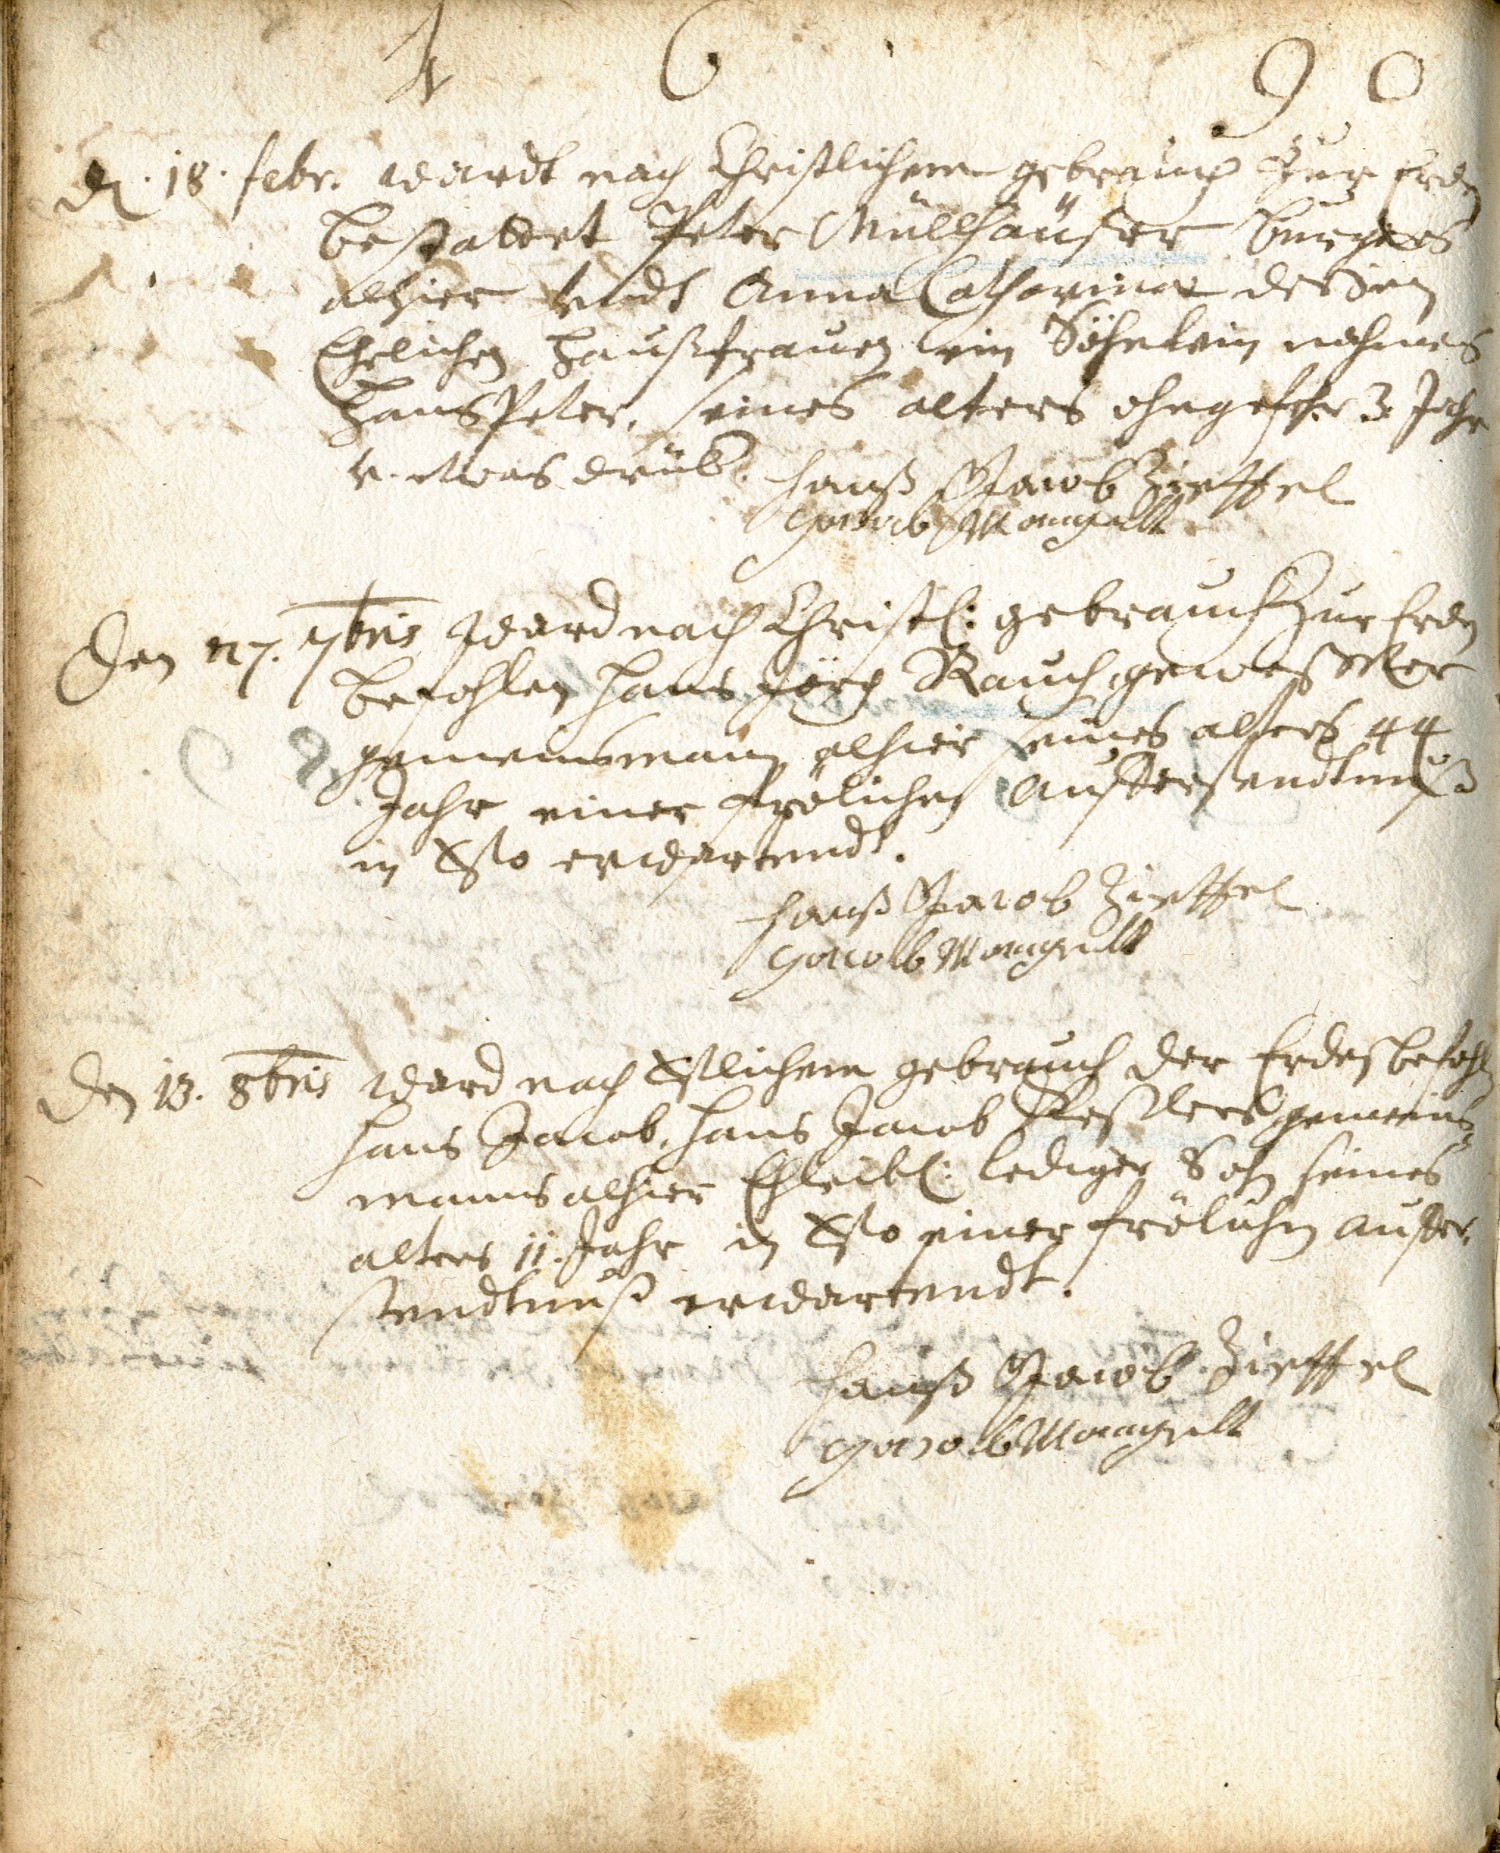 1 6 9 0
d. 18. febr. wardt nach Christlichem gebrauch Zur Erden
bestattet Peter Müllhäußer burgers
alhier undt Anna Catharinae dessen
Ehelichen haußfrauen ein Söhnlein nahmens
Hans Peter, seines alters ohngefehr 3 Jahr
v. etwas drüb.
Hanß Jacob Zieffel
Jacob Mangolt
Den 27. 7bris ward nach Christl: gebrauch Zur Erden
befohlen Hans Jörg Rauch, geweßner
gemeinsmann alhier seines alters 44
Jahr einer frölichen Aufferstendtnuß
in Xsto erwartendt.
Hanß Jacob Zieffel
Jacob Mangolt
Den 13. 8bris ward nach Xstlichem gebrauch der Erden befohlen
Hans Jacob, Hans Jacob Keßlers gemeins
manns alhier Ehleibl: lediger Sohn seines
alters 11. Jahr in Xsto einer frölichen auffer-
stendtnuß erwartendt.
Hanß Jacob Zieffel
Jacob Mangolt